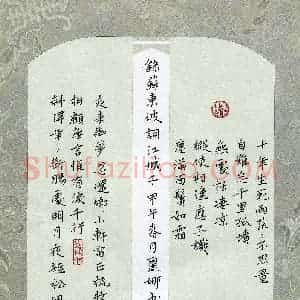 十年生死兩茫茫不思量
自難忘千里孤墳
無處話淒涼
縱使相逢應不識
塵滿面鬢如霜
錄蘇東坡詞江城子甲午春月
夜來幽夢忽還鄉小軒窗正梳
相顧無言惟有淚千行
料得年年斷腸處明月夜短松岡